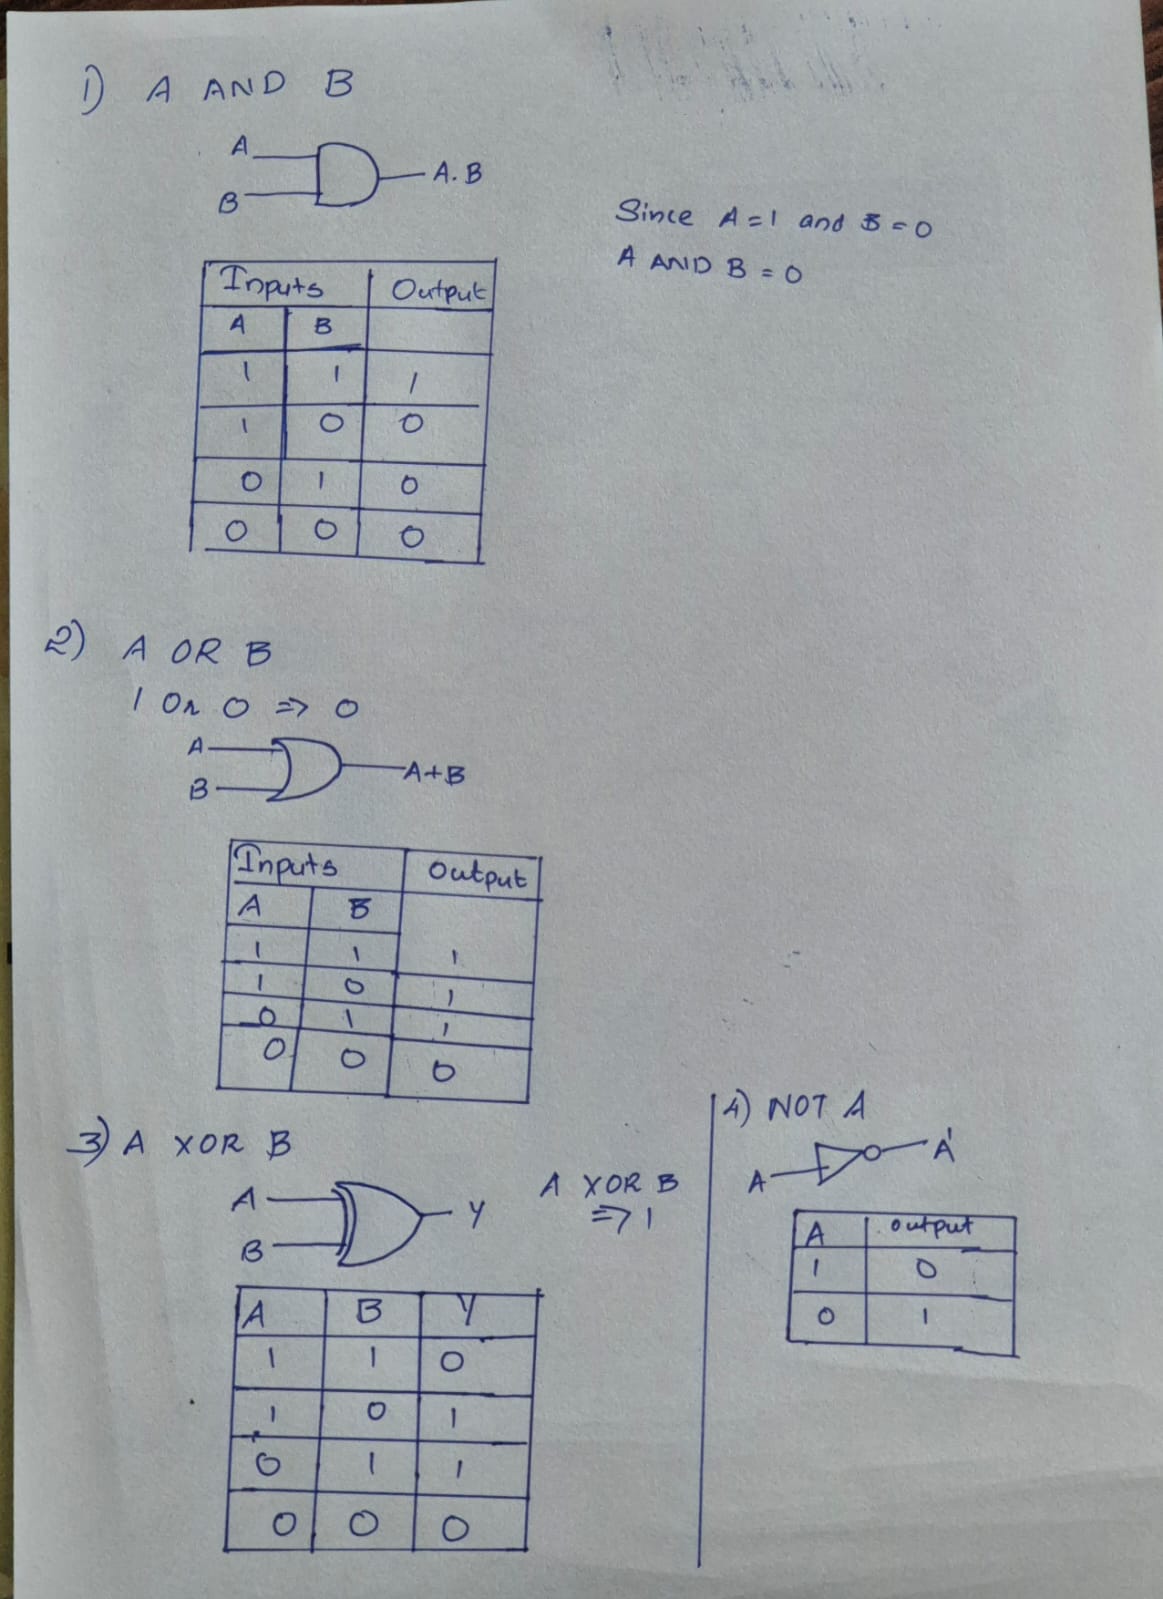 1) A AND B
A
B
A.B
Since A=1 and B=0
A AND B = 0
Inputs Output
A B
1 1 1
1 0 0
0 1 0
0 0 0
2) A OR B
1 Or 0 => 0
A
B
A+B
Inputs Output
A B
1 1 1
1 0 1
0 1 1
0 0 0
3) A XOR B
A
B
Y
A XOR B
=> 1
A B Y
1 1 0
1 0 1
0 1 1
0 0 0
4) NOT A
A
A'
A output
1 0
0 1